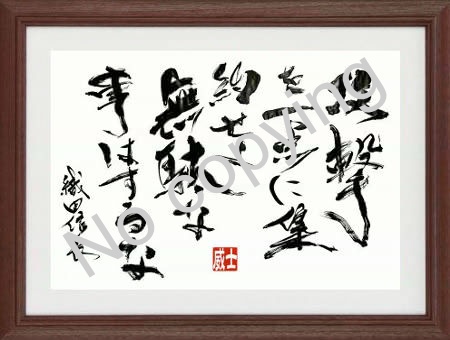 攻撃
を一点に集
約せよ
無駄な
事はするな
織田信長
威士
No copying